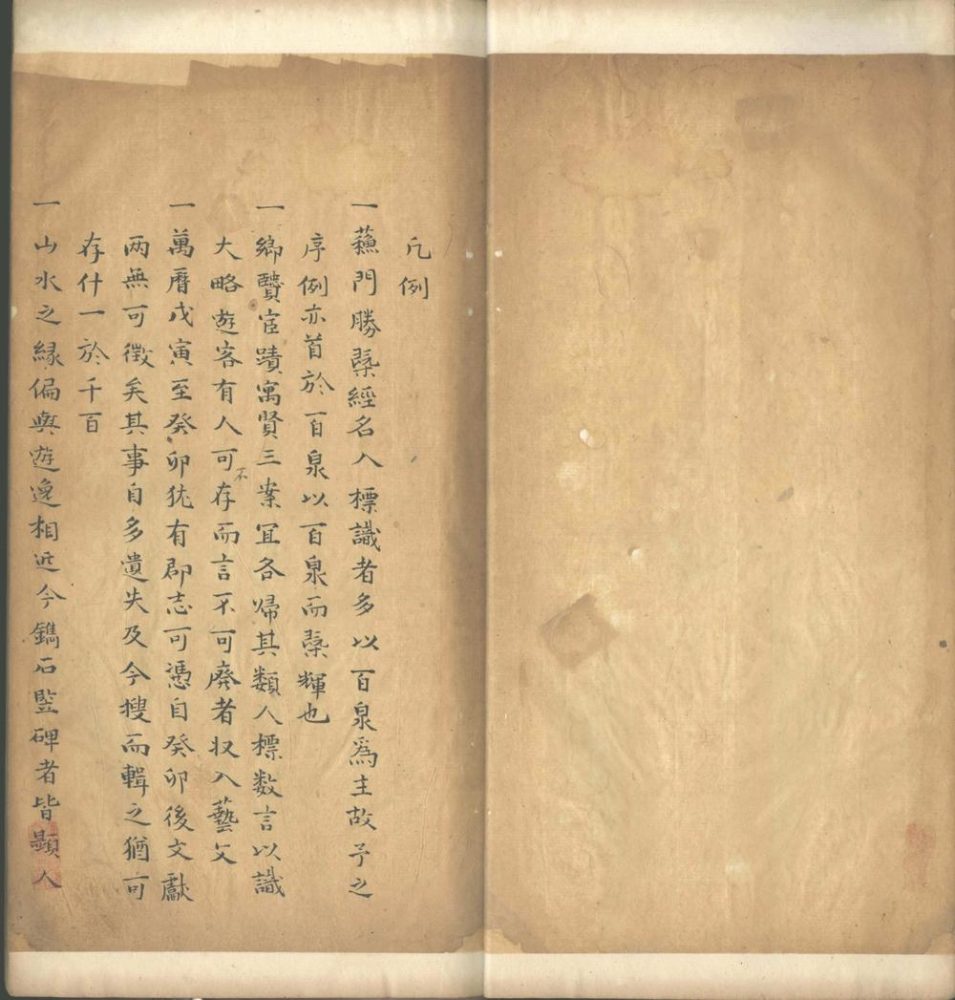 凡例
一蘓門勝槩經名人標識者多以百泉爲主故予之
序例亦首於百泉以百泉而槩輝也
一鄉賢宦蹟寓賢三案宜各歸其類人標数言以識
大略遊客有人可不存而言不可廢者収入藝文
一萬曆戊寅至癸卯犹有郡志可憑自癸卯後文獻
兩無可徵矣其事自多遺失及今搜而輯之猶可
存什一於千百
一山水之緣偏與遊逸相近今鐫石竪碑者皆顯人